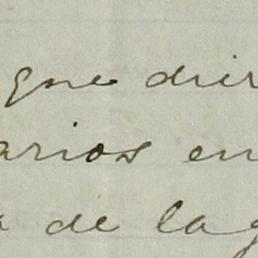 que dir
arios en
a de lag